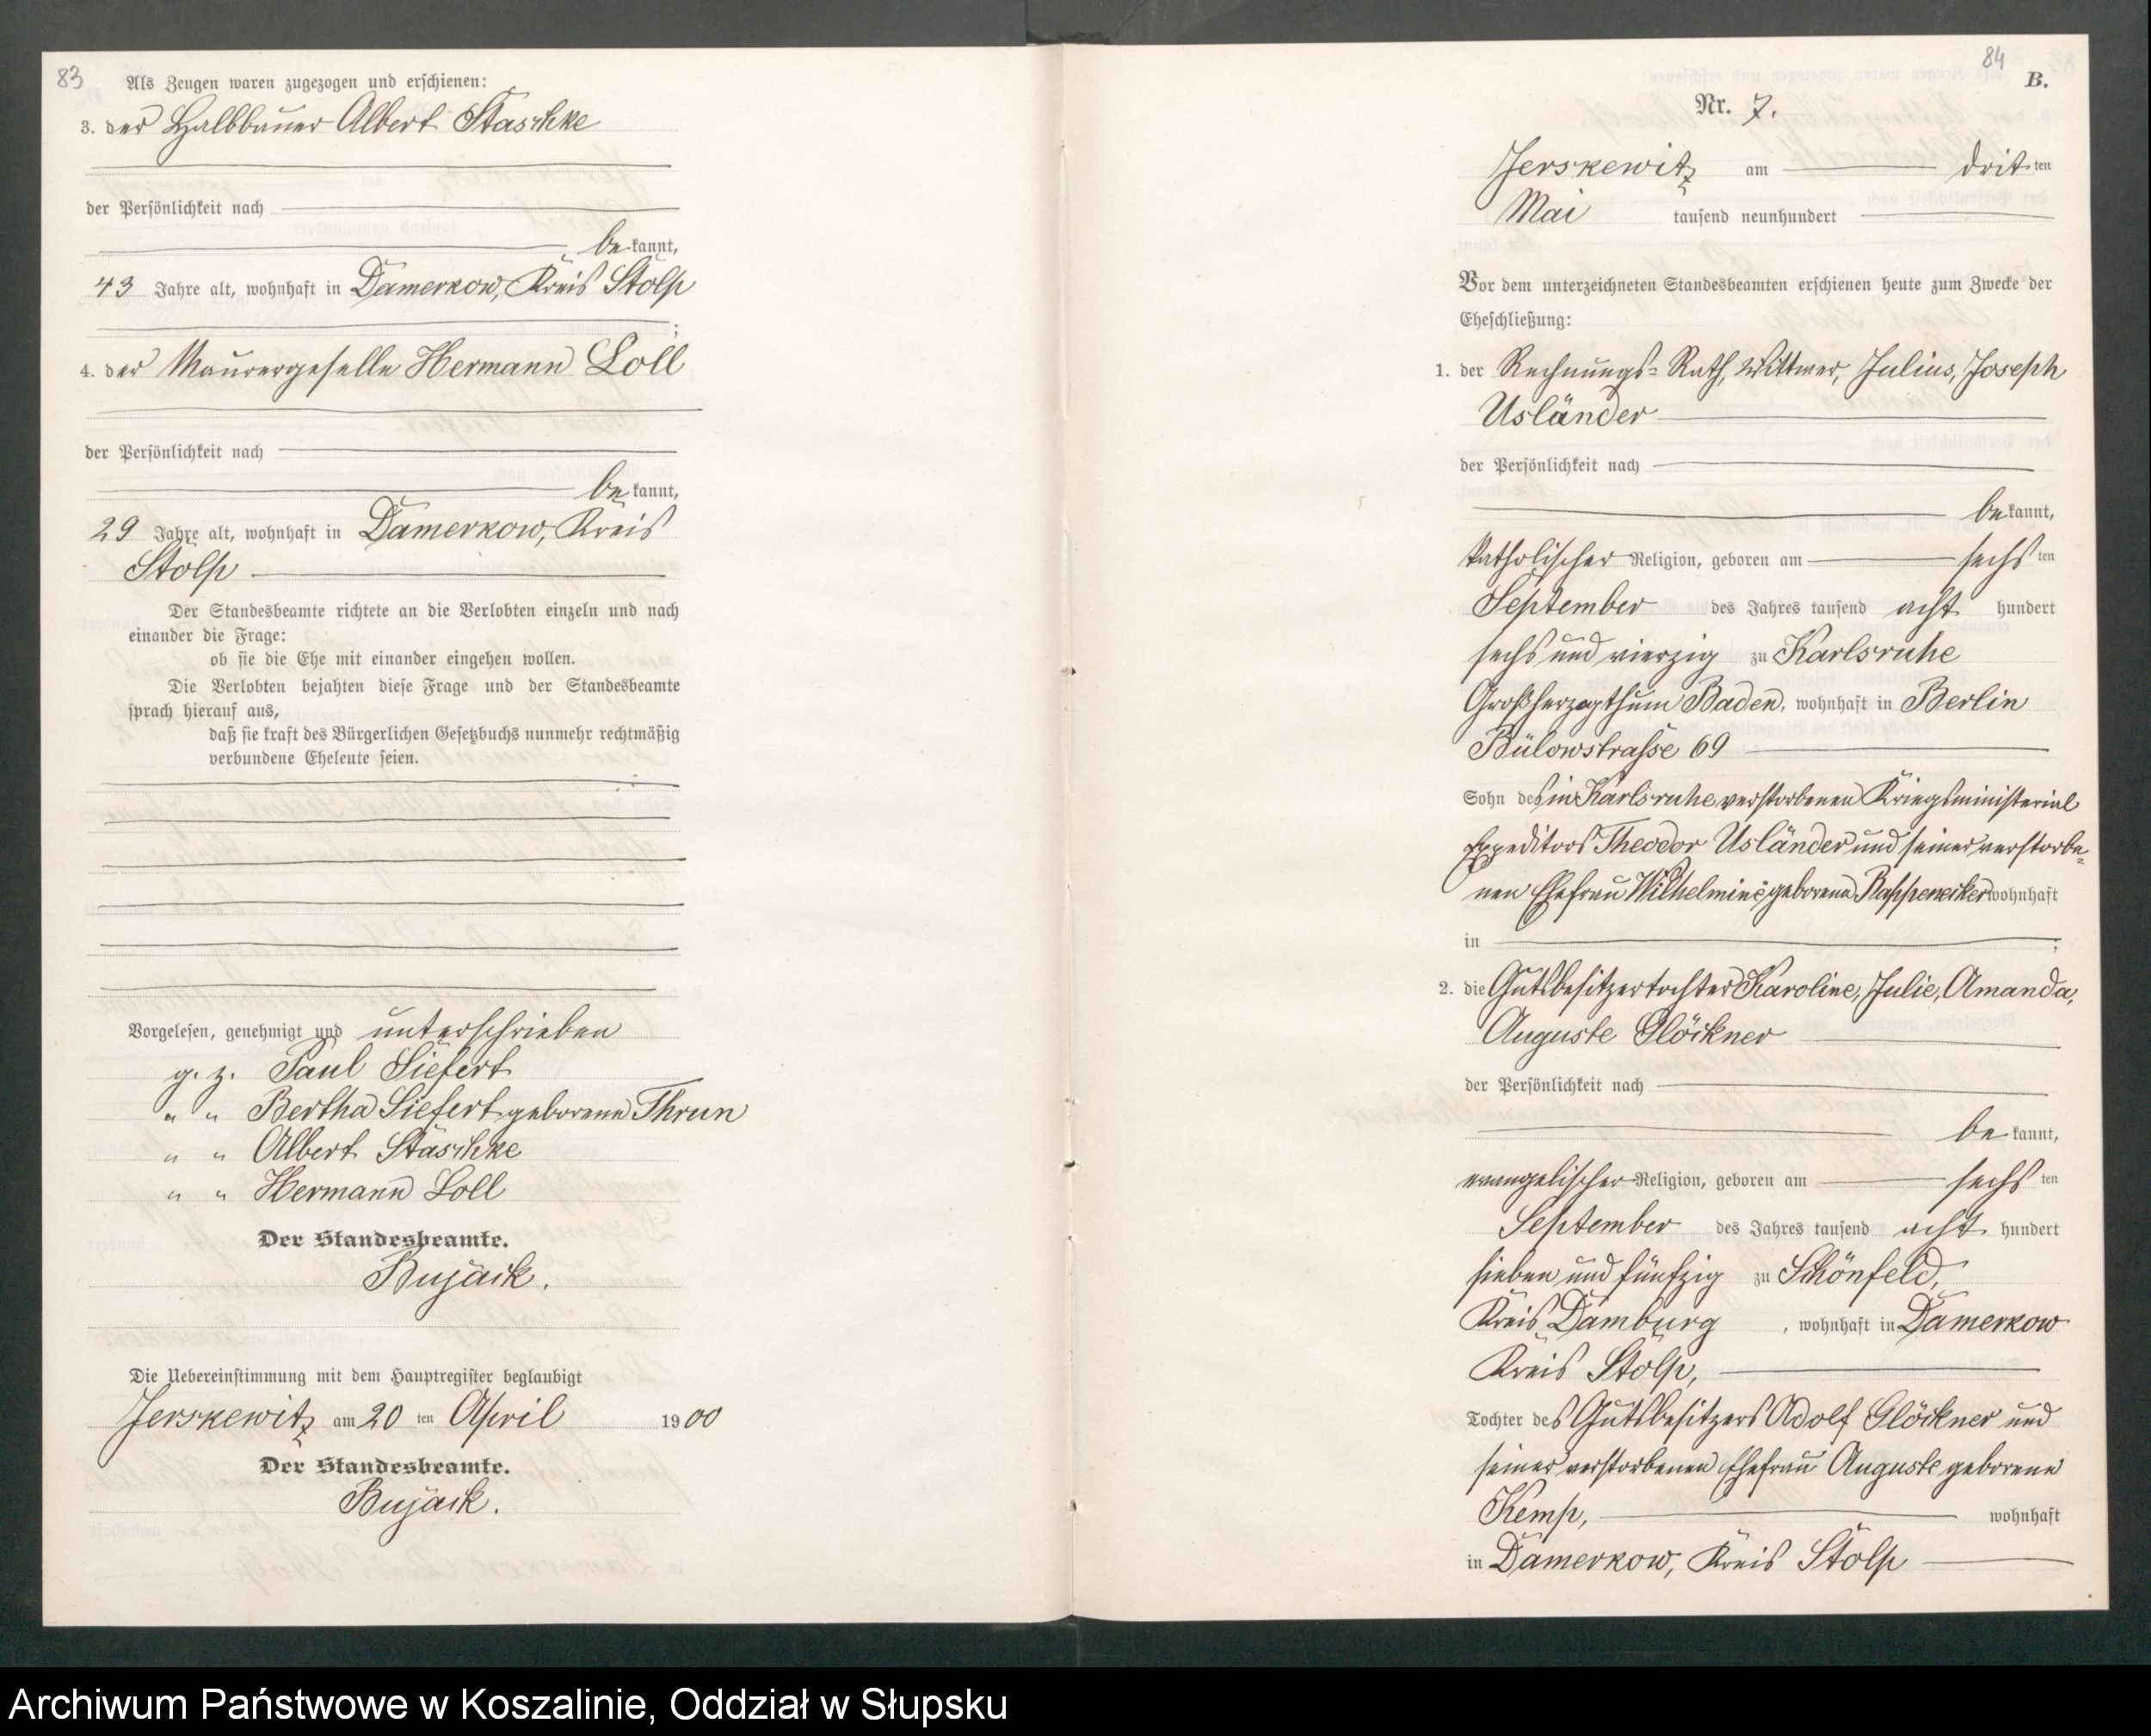 83
Als Zeugen waren zugezogen und erschienen:
3. der Halbbauer Albert Staschke
der Persönlichkeit nach
bekannt,
43 Jahre alt, wohnhaft in Damerkow, Kreis Stolp
;
4. der Maurergeselle Hermann Loll
der Persönlichkeit nach
bekannt,
29 Jahre alt, wohnhaft in Damerkow, Kreis
Stolp
Der Standesbeamte richtete an die Verlobten einzeln und nach
einander die Frage:
ob sie die Ehe mit einander eingehen wollen.
Die Verlobten bejahten diese Frage und der Standesbeamte
sprach hierauf aus,
daß sie kraft des Bürgerlichen Gesetzbuchs nunmehr rechtmäßig
verbundene Eheleute seien.
Vorgelesen, genehmigt und unterschrieben
g. z. Paul Siefert
" " Bertha Siefert geborene Thrun
" " Albert Staschke
" " Hermann Loll
Der Standesbeamte.
Bujack.
Die Uebereinstimmung mit dem Hauptregister beglaubigt
Jerskewitz am 20 ten April 1900
Der Standesbeamte.
Bujack.
84
B.
Nr. 7.
Jerskewitz am dritten
Mai tausend neunhundert
Vor dem unterzeichneten Standesbeamten erschienen heute zum Zwecke der
Eheschließung:
1. der Rechnungs-Rath, Wittwer, Julius, Joseph
Usländer
der Persönlichkeit nach
bekannt,
katholischer Religion, geboren am sechsten
September des Jahres tausend acht hundert
sechs und vierzig zu Karlsruhe
Großherzogthum Baden, wohnhaft in Berlin
Bülowstrasse 69
Sohn des in Karlsruhe verstorbenen Kriegsministerial
Expeditors Theodor Usländer und seiner verstorbe-
nen Ehefrau Wilhelmine geborene Rappenecker wohnhaft
in ;
2. die Gutsbesitzertochter Karoline, Julie, Amanda,
Auguste Glöckner
der Persönlichkeit nach
bekannt,
evangelischer Religion, geboren am sechsten
September des Jahres tausend acht hundert
sieben und fünfzig zu Schönfeld,
Kreis Damburg, wohnhaft in Damerkow
Kreis Stolp,
Tochter des Gutsbesitzers Adolf Glöckner und
seiner verstorbenen Ehefrau Auguste geborene
Kemp, wohnhaft
in Damerkow, Kreis Stolp
Archiwum Państwowe w Koszalinie, Oddział w Słupsku